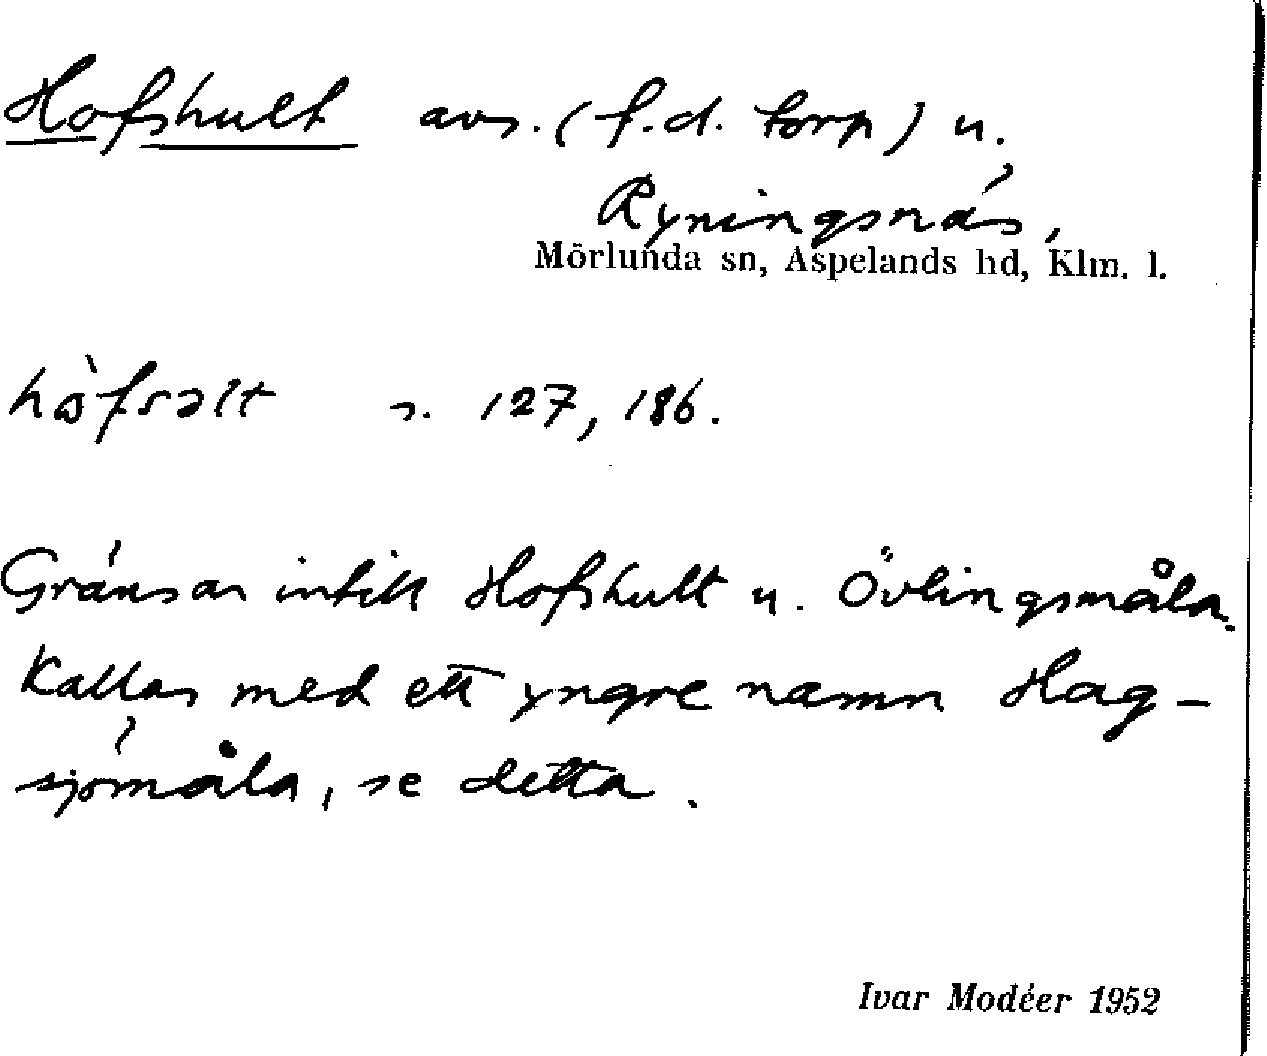 Hofshult avs. (f.d. torp) u.
Ryningsnäs,
Mörlunda sn, Aspelands hd, Klm. l.
s. 127, 186.
Gränsar intill Hofshult u. Övlingsmåla.
Kallas med ett yngre namn Hag-
sjömåla, se detta.
Ivar Modéer 1952